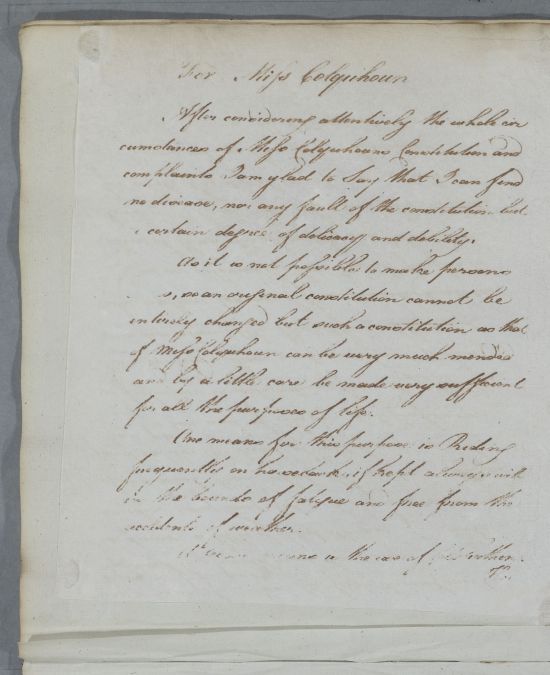 For Miss Colquhoun
After considering attentively the whole cir
cumstances of Miss Colquhouns Constitution and
complaints I am glad to Say that I can find
no disease, nor any fault of the constitution but
a certain degree of delicacy and debility.
As it is not possible to make persons
so an original constitution cannot be
intirely changed but such a constitution as that
of Miss Colquhoun can be very much mended
and by a little care be made very sufficient
for all the purposes of life.
One means for this purpose is Riding
frequently on horseback, if kept always with
in the bounds of fatigue and free from the
accidents of weather.
means is the use of